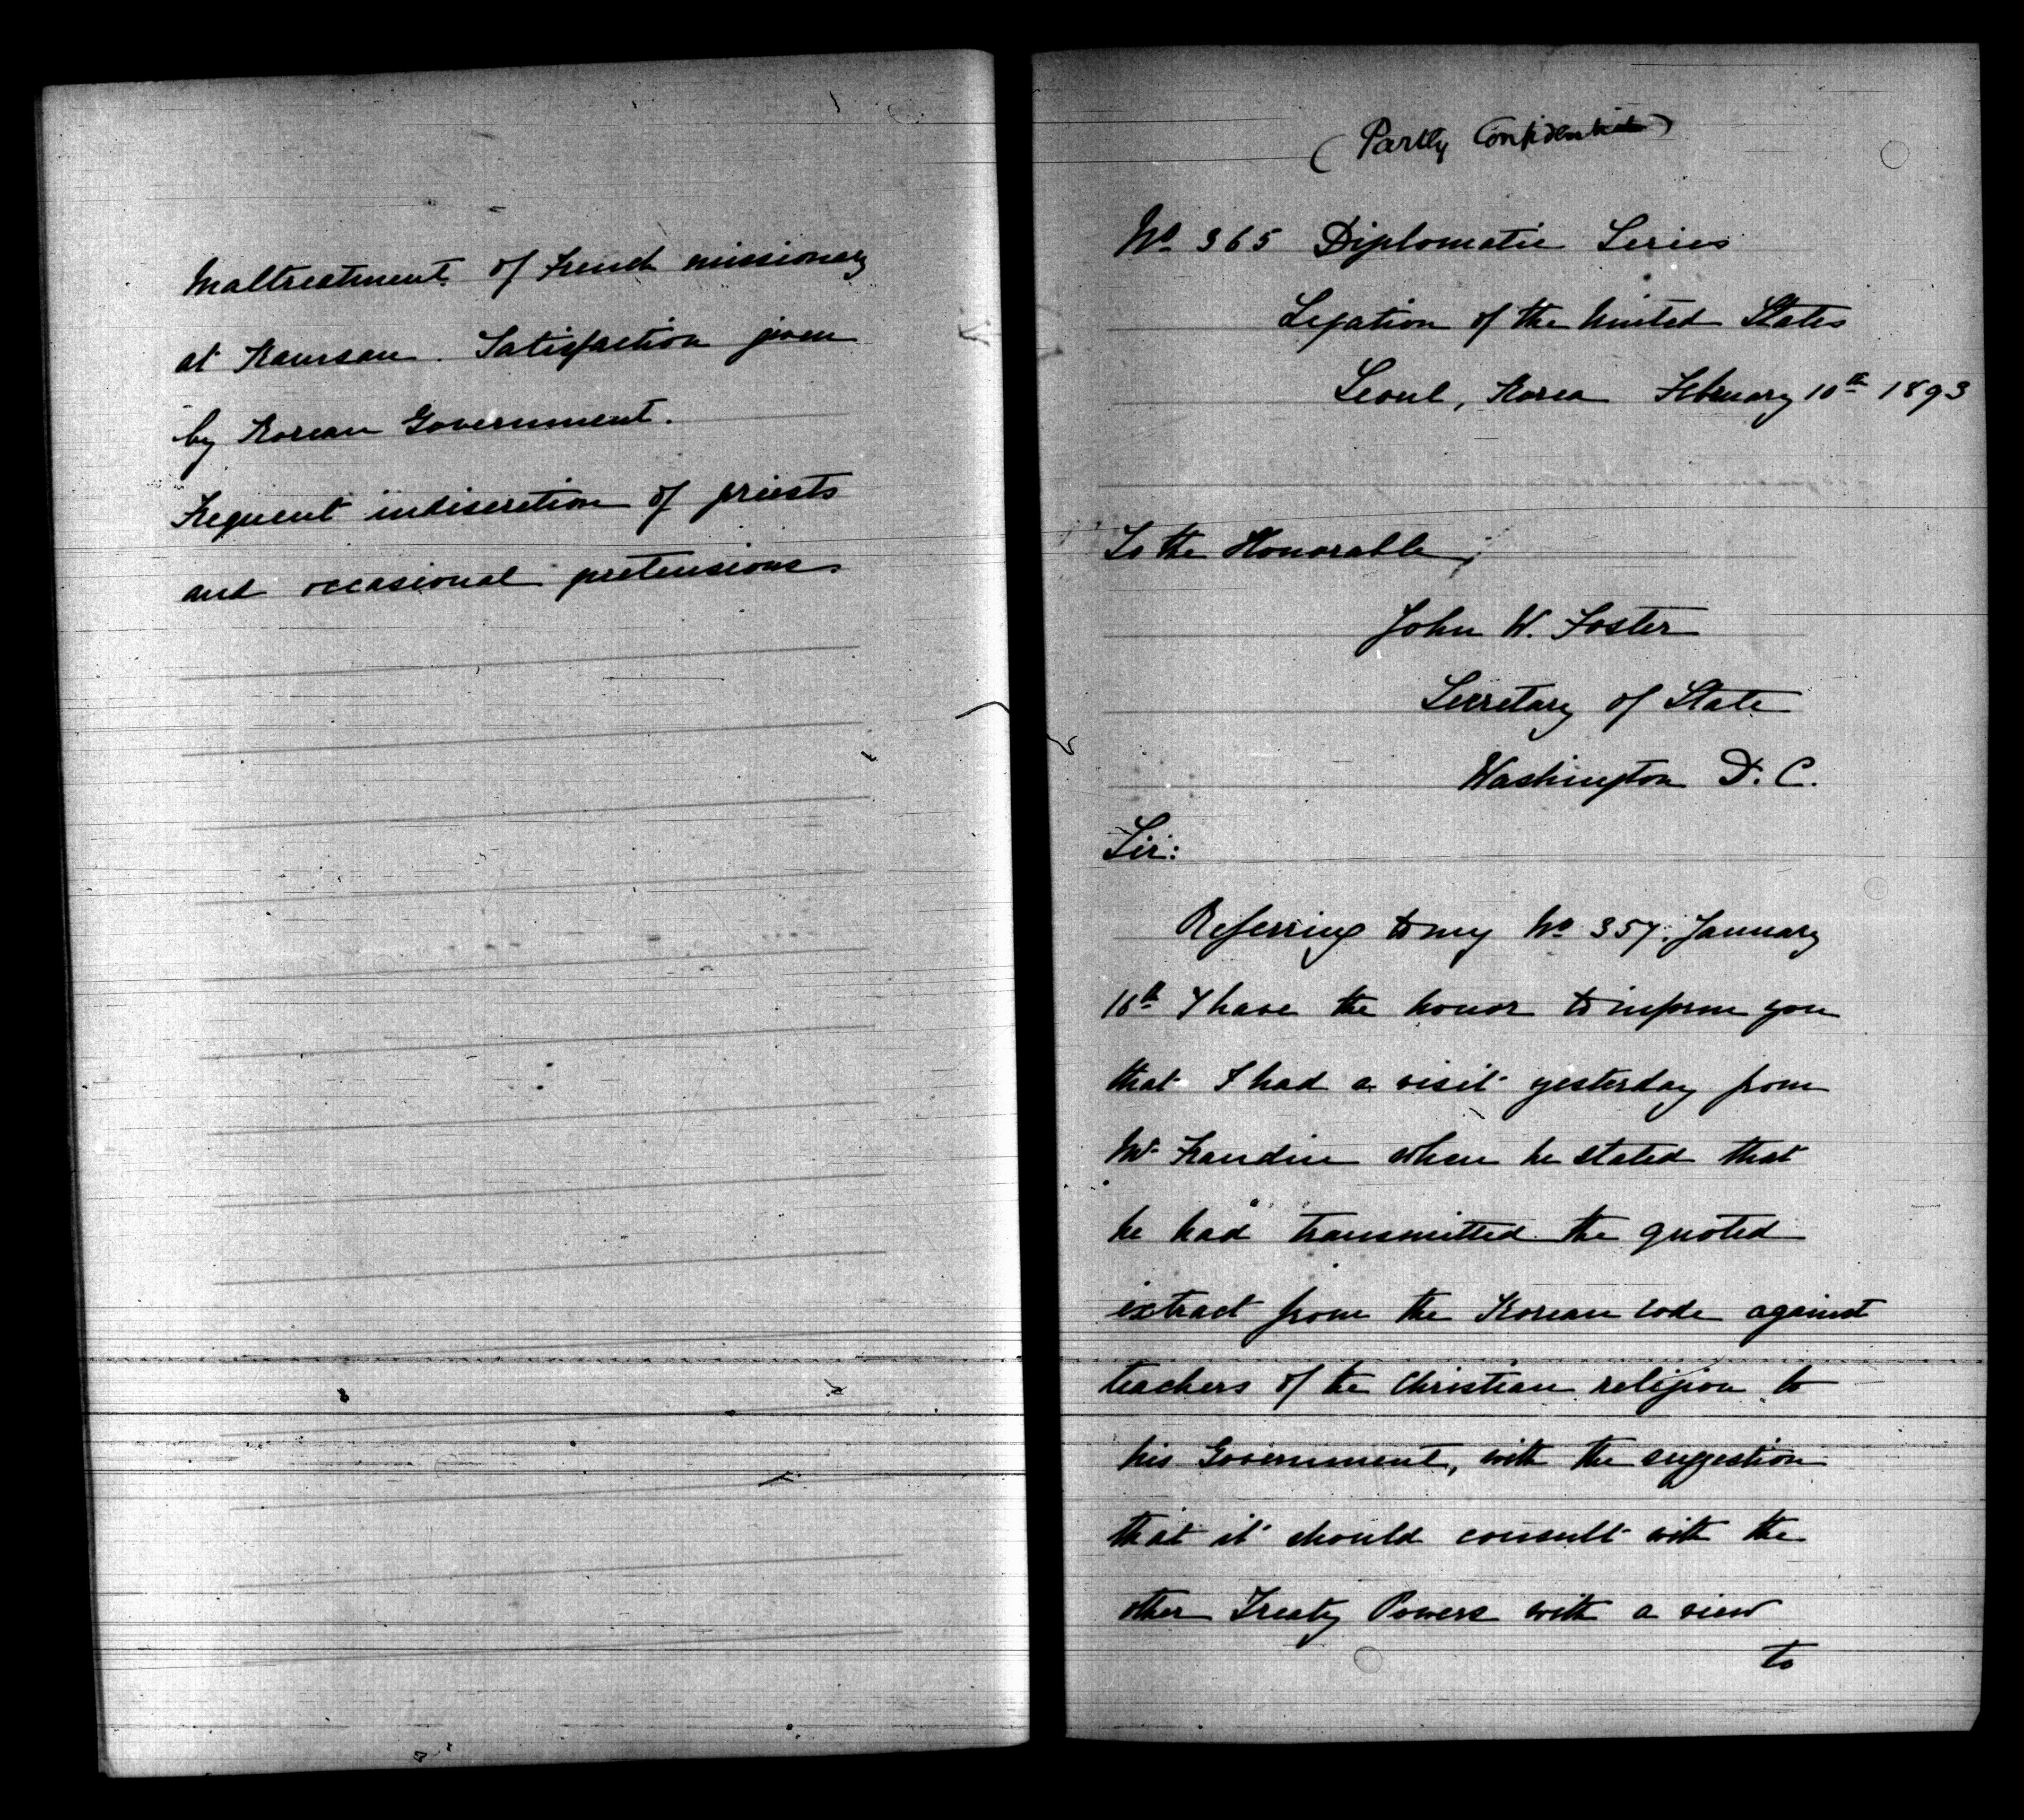 Maltreatment of French missionary
at Kamsan. Satisfaction given
by Korean Government.
Frequent indiscretion of priests
and occasional pretensions.
(Partly Confidential)
No 365 Diplomatic Series
Legation of the United States
Seoul, Korea February 10th 1893
To the Honorable,
John W. Foster
Secretary of State
Washington D. C.
Sir:
Referring to my No 357, January
16th I have the honor to inform you
that I had a visit yesterday from
Mr Frandin when he stated that
he had transmitted the quoted
extract from the Korean code against
teachers of the Christian religion to
his Government, with the suggestion
that it should consult with the
other Treaty Powers with a view
to